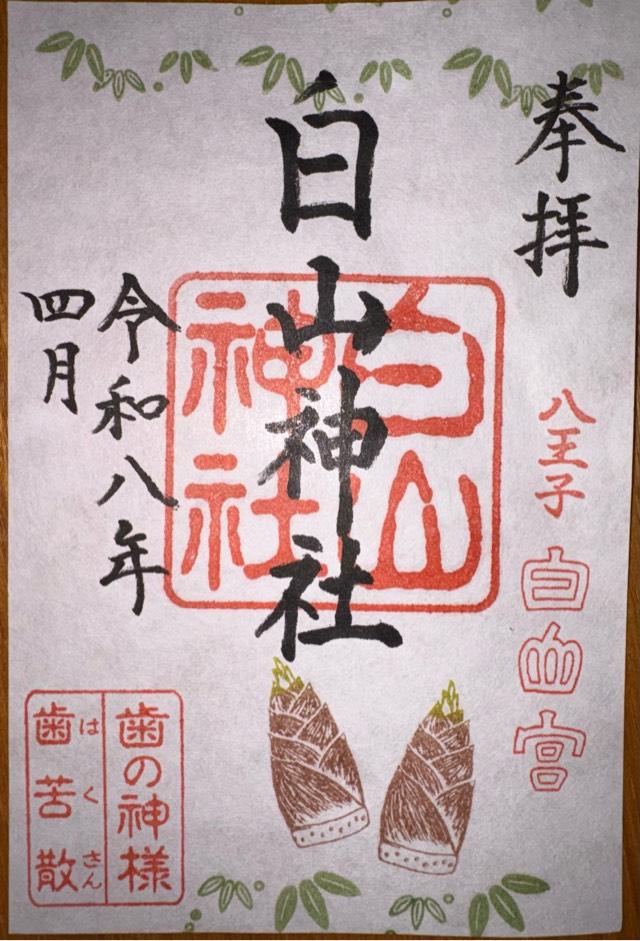 奉拝
八王子 白山宮
白山神社
白山
神社
令和八年
四月
歯の神様
歯苦散
はくさん